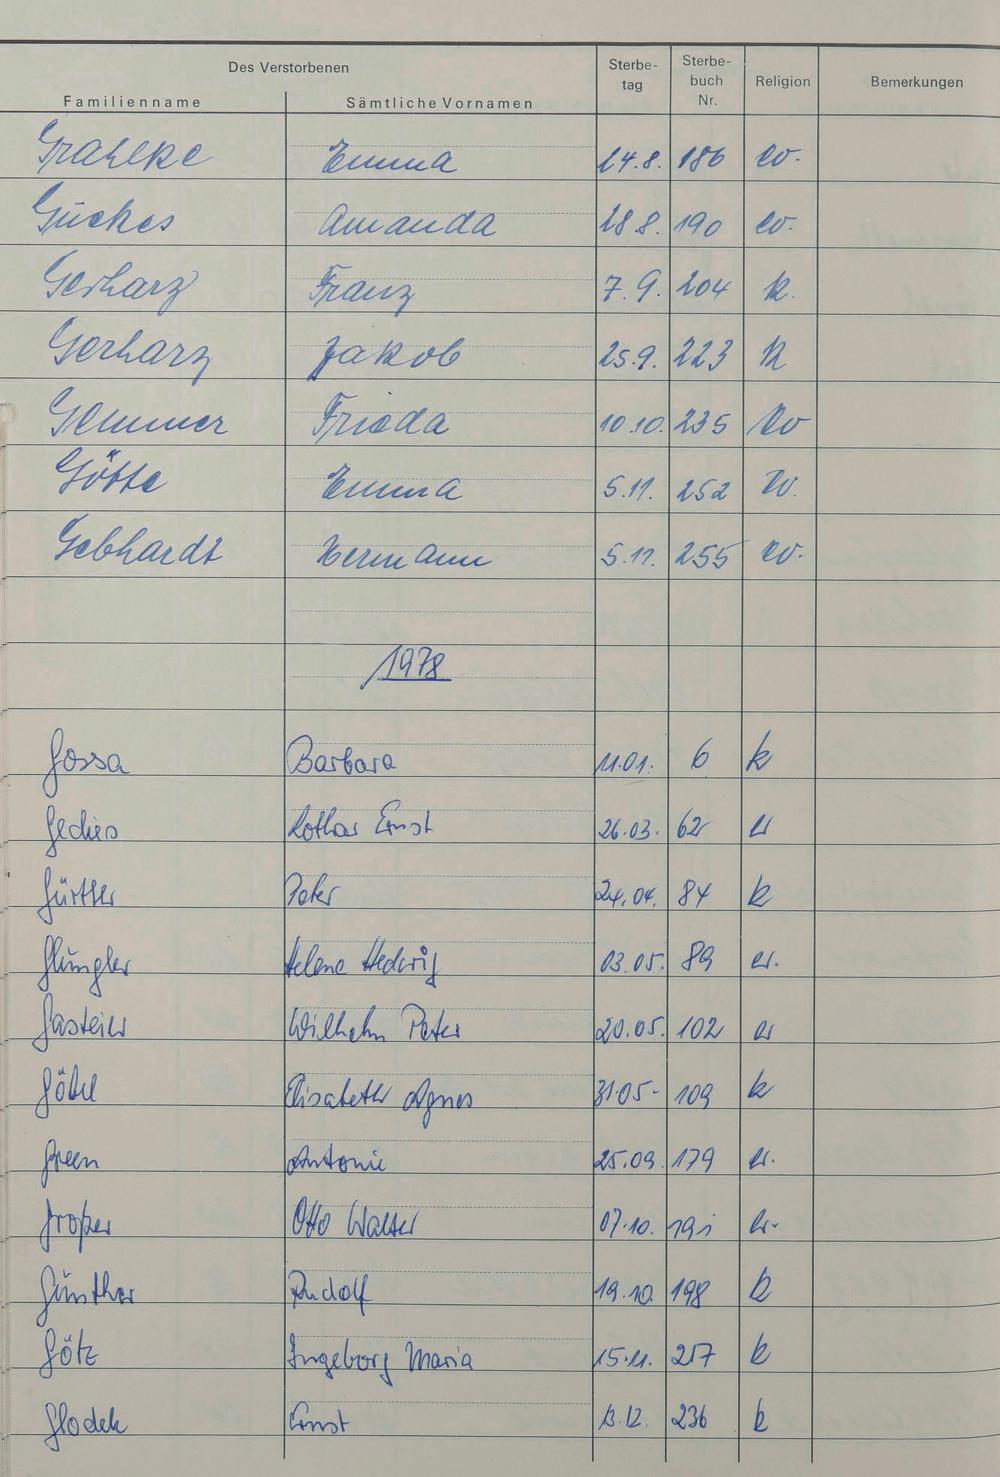 Des Verstorbenen
Familienname Sämtliche Vornamen Sterbe-tag Sterbe-buch Nr. Religion Bemerkungen
Grahlke Emma 24.8. 186 ev.
Guckes Amanda 28.8. 190 ev.
Gerharz Franz 7.9. 204 k.
Gerharz Jakob 25.9. 223 k
Gemmer Frieda 10.10. 235 ev
Götte Emma 5.11. 252 ev.
Gebhardt Hermann 5.11. 255 ev.
1978
Gossa Barbara 11.01. 6 k
Gedies Lothar Ernst 26.03. 62 ev
Gürtler Peter 24.04. 84 k
Helene Hedwig 03.05. 89 ev.
Gasteier Wilhelm Peter 20.05. 102 ev
Göbel Elisabeth Agnes 31.05- 109 k
Green Antonie 25.09. 179 ev.
Großer Otto Walter 07.10. 191 ev.
Günther Rudolf 19.10. 198 k
Götz Ingeborg Maria 15.11. 217 k
Glodek Ernst 13.12. 236 k